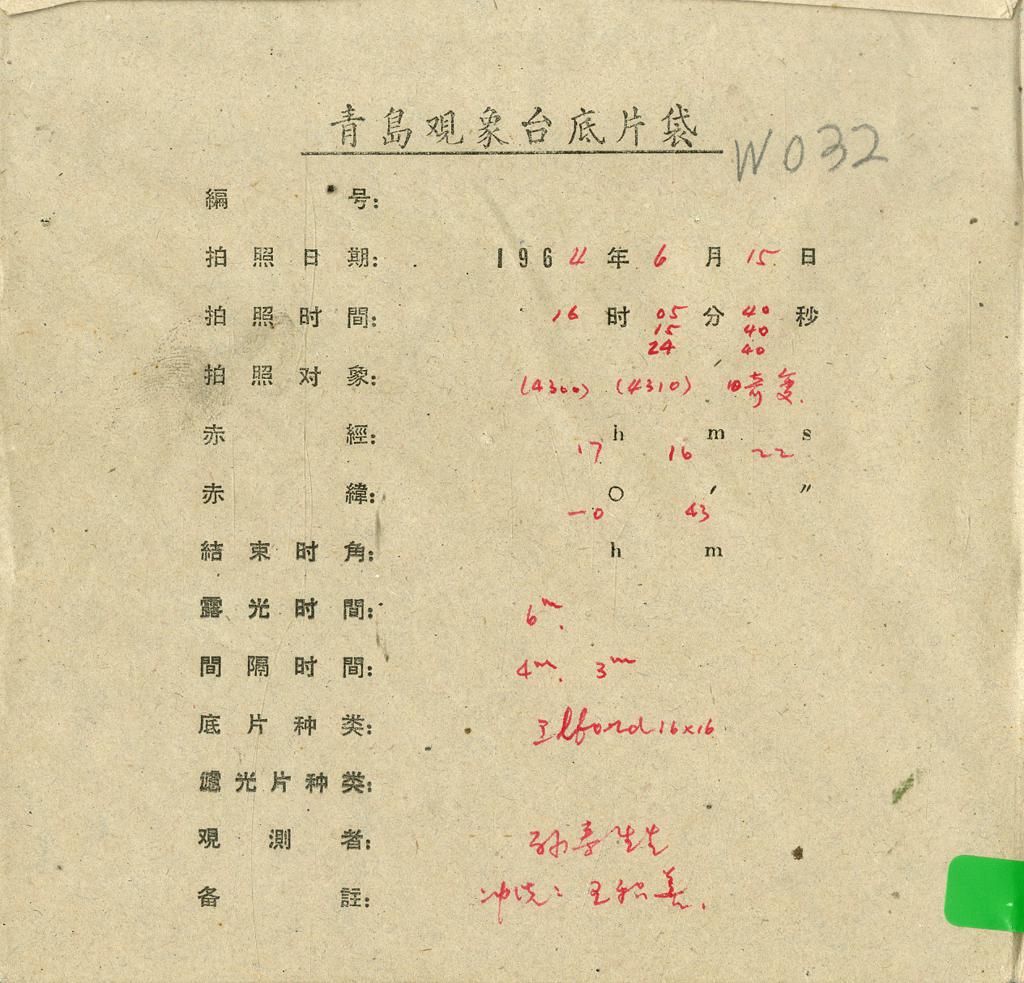 青島观象台底片袋
W032
編号:
拍照日期: 1964年6月15日
拍照时間: 16时05分40秒
15 40
24 40
拍照对象: (4300) (4310)
赤經: 17h 16m 22s
赤緯: -0° 43′ ″
結束时角: h m
露光时間: 6m.
間隔时間: 4m. 3m
底片种类: Ilford 16×16
濾光片种类:
观測者: 孙寿
备註: 冲洗: 王